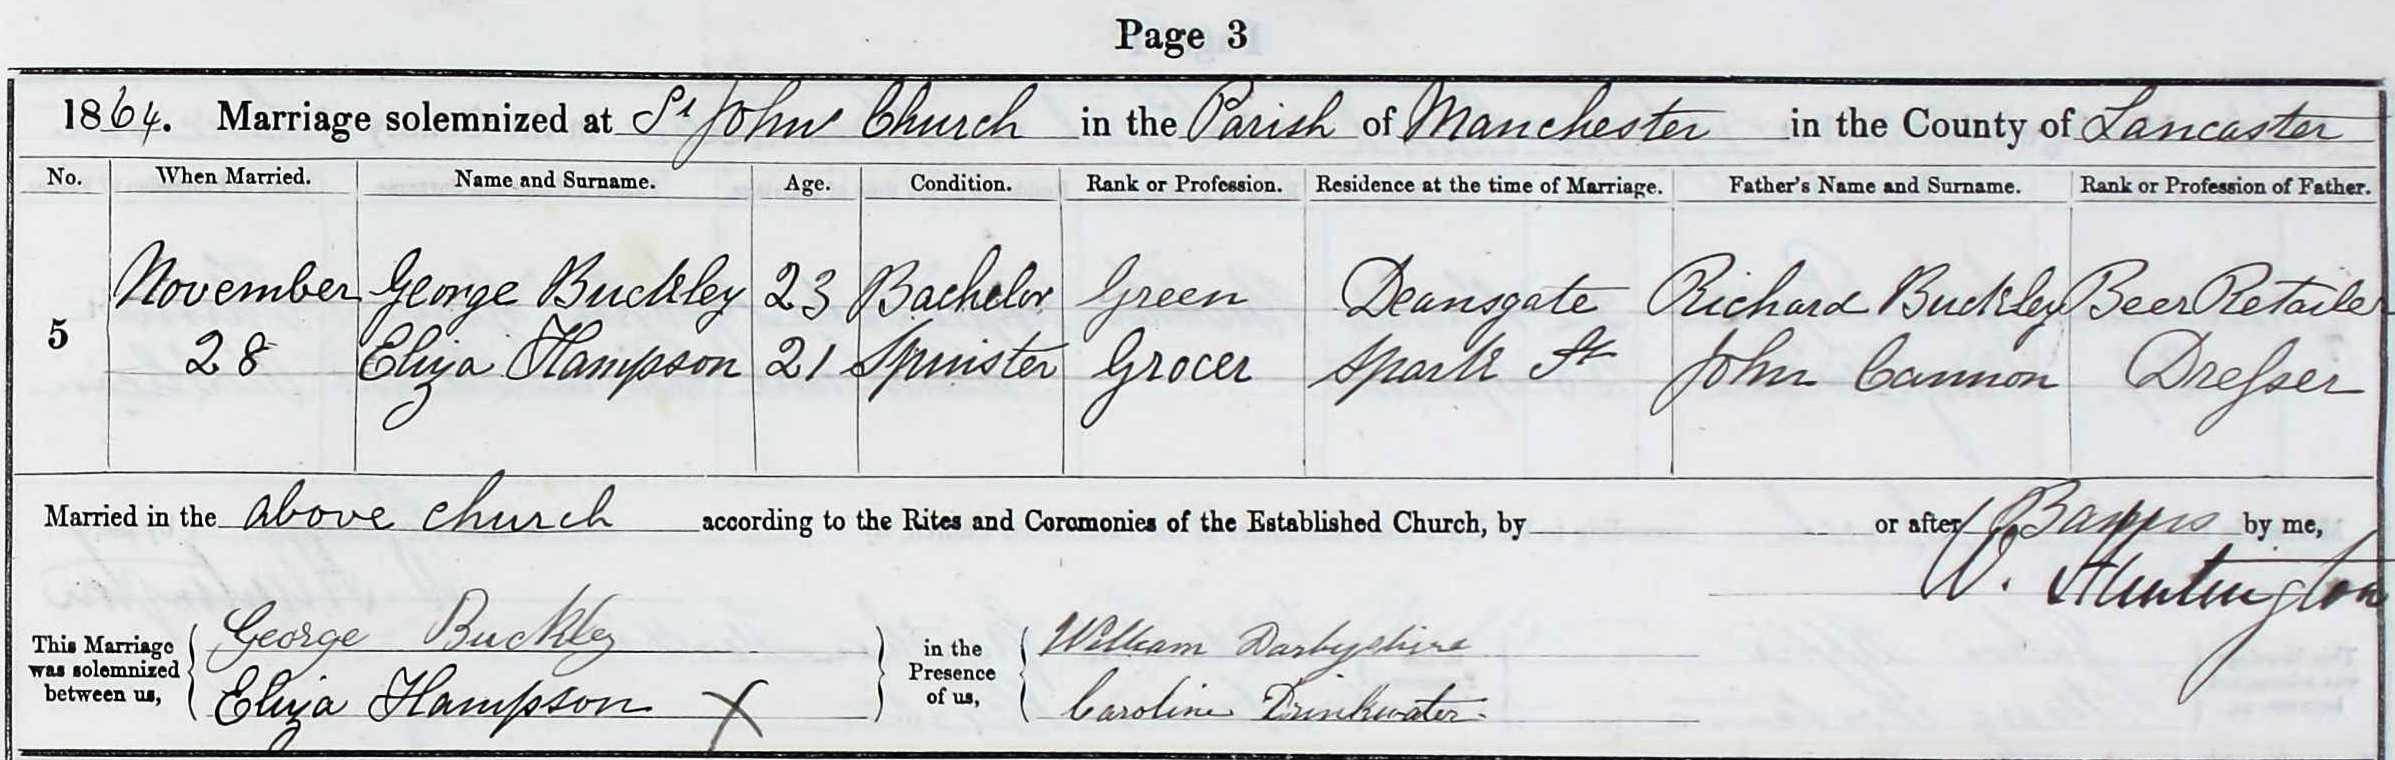 Page 3
1864. Marriage solemnized at St Johns Church in the Parish of Manchester in the County of Lancaster
No. When Married. Name and Surname. Age. Condition. Rank or Profession. Residence at the time of Marriage. Father's Name and Surname. Rank or Profession of Father.
November George Buckley 23 Bachelor Green Deansgate Richard Buckley Beer Retailer
5 28 Eliza Hampson 21 Spinster Grocer Spark St John Cannon Dreſser
Married in the above church according to the Rites and Ceremonies of the Established Church, by or after Banns by me,
W. Huntington
This Marriage was solemnized between us, George Buckley in the Presence of us, William Darbyshire
Eliza Hampson X Caroline Drinkwater